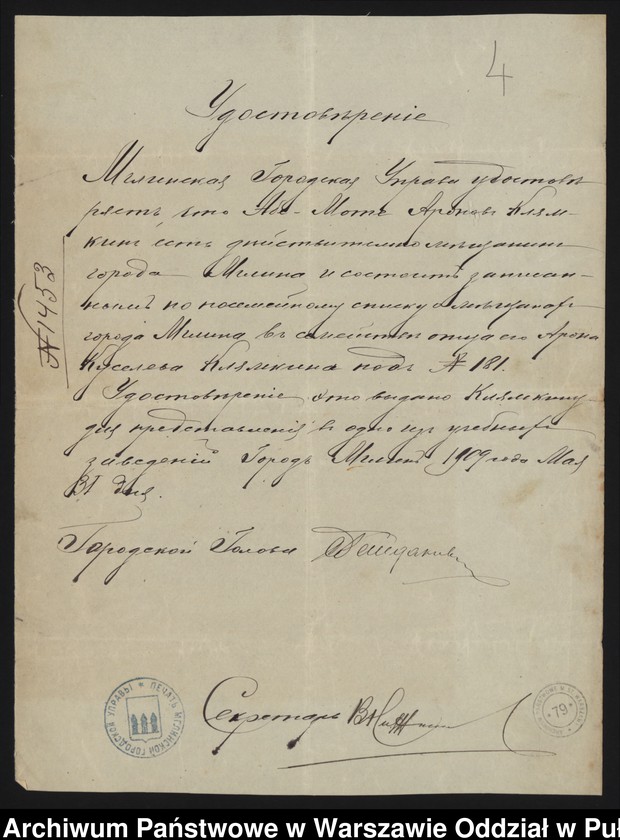 4
Удостовѣреніе
Мглинская Городская Управа удостовѣ-
ряетъ что Абе-Мота Ароновъ Клям-
кинъ есть дѣйствительно мѣщанинъ
города Мглина и состоитъ записан-
нымъ по посемейному списку о мѣщанахъ
города Мглина въ семействѣ отца его Арона
Клямкина подъ № 181.
Удостовѣреніе это выдано Клямкину
для представленія въ одно изъ учебныхъ
заведеній Городъ Мглинъ 1909 года Мая
31 дня.
№ 1453
Городской Голова
Секретарь
ПЕЧАТЬ МГЛИНСКОЙ ГОРОДСКОЙ УПРАВЫ
79
Archiwum Państwowe w Warszawie Oddział w Puł